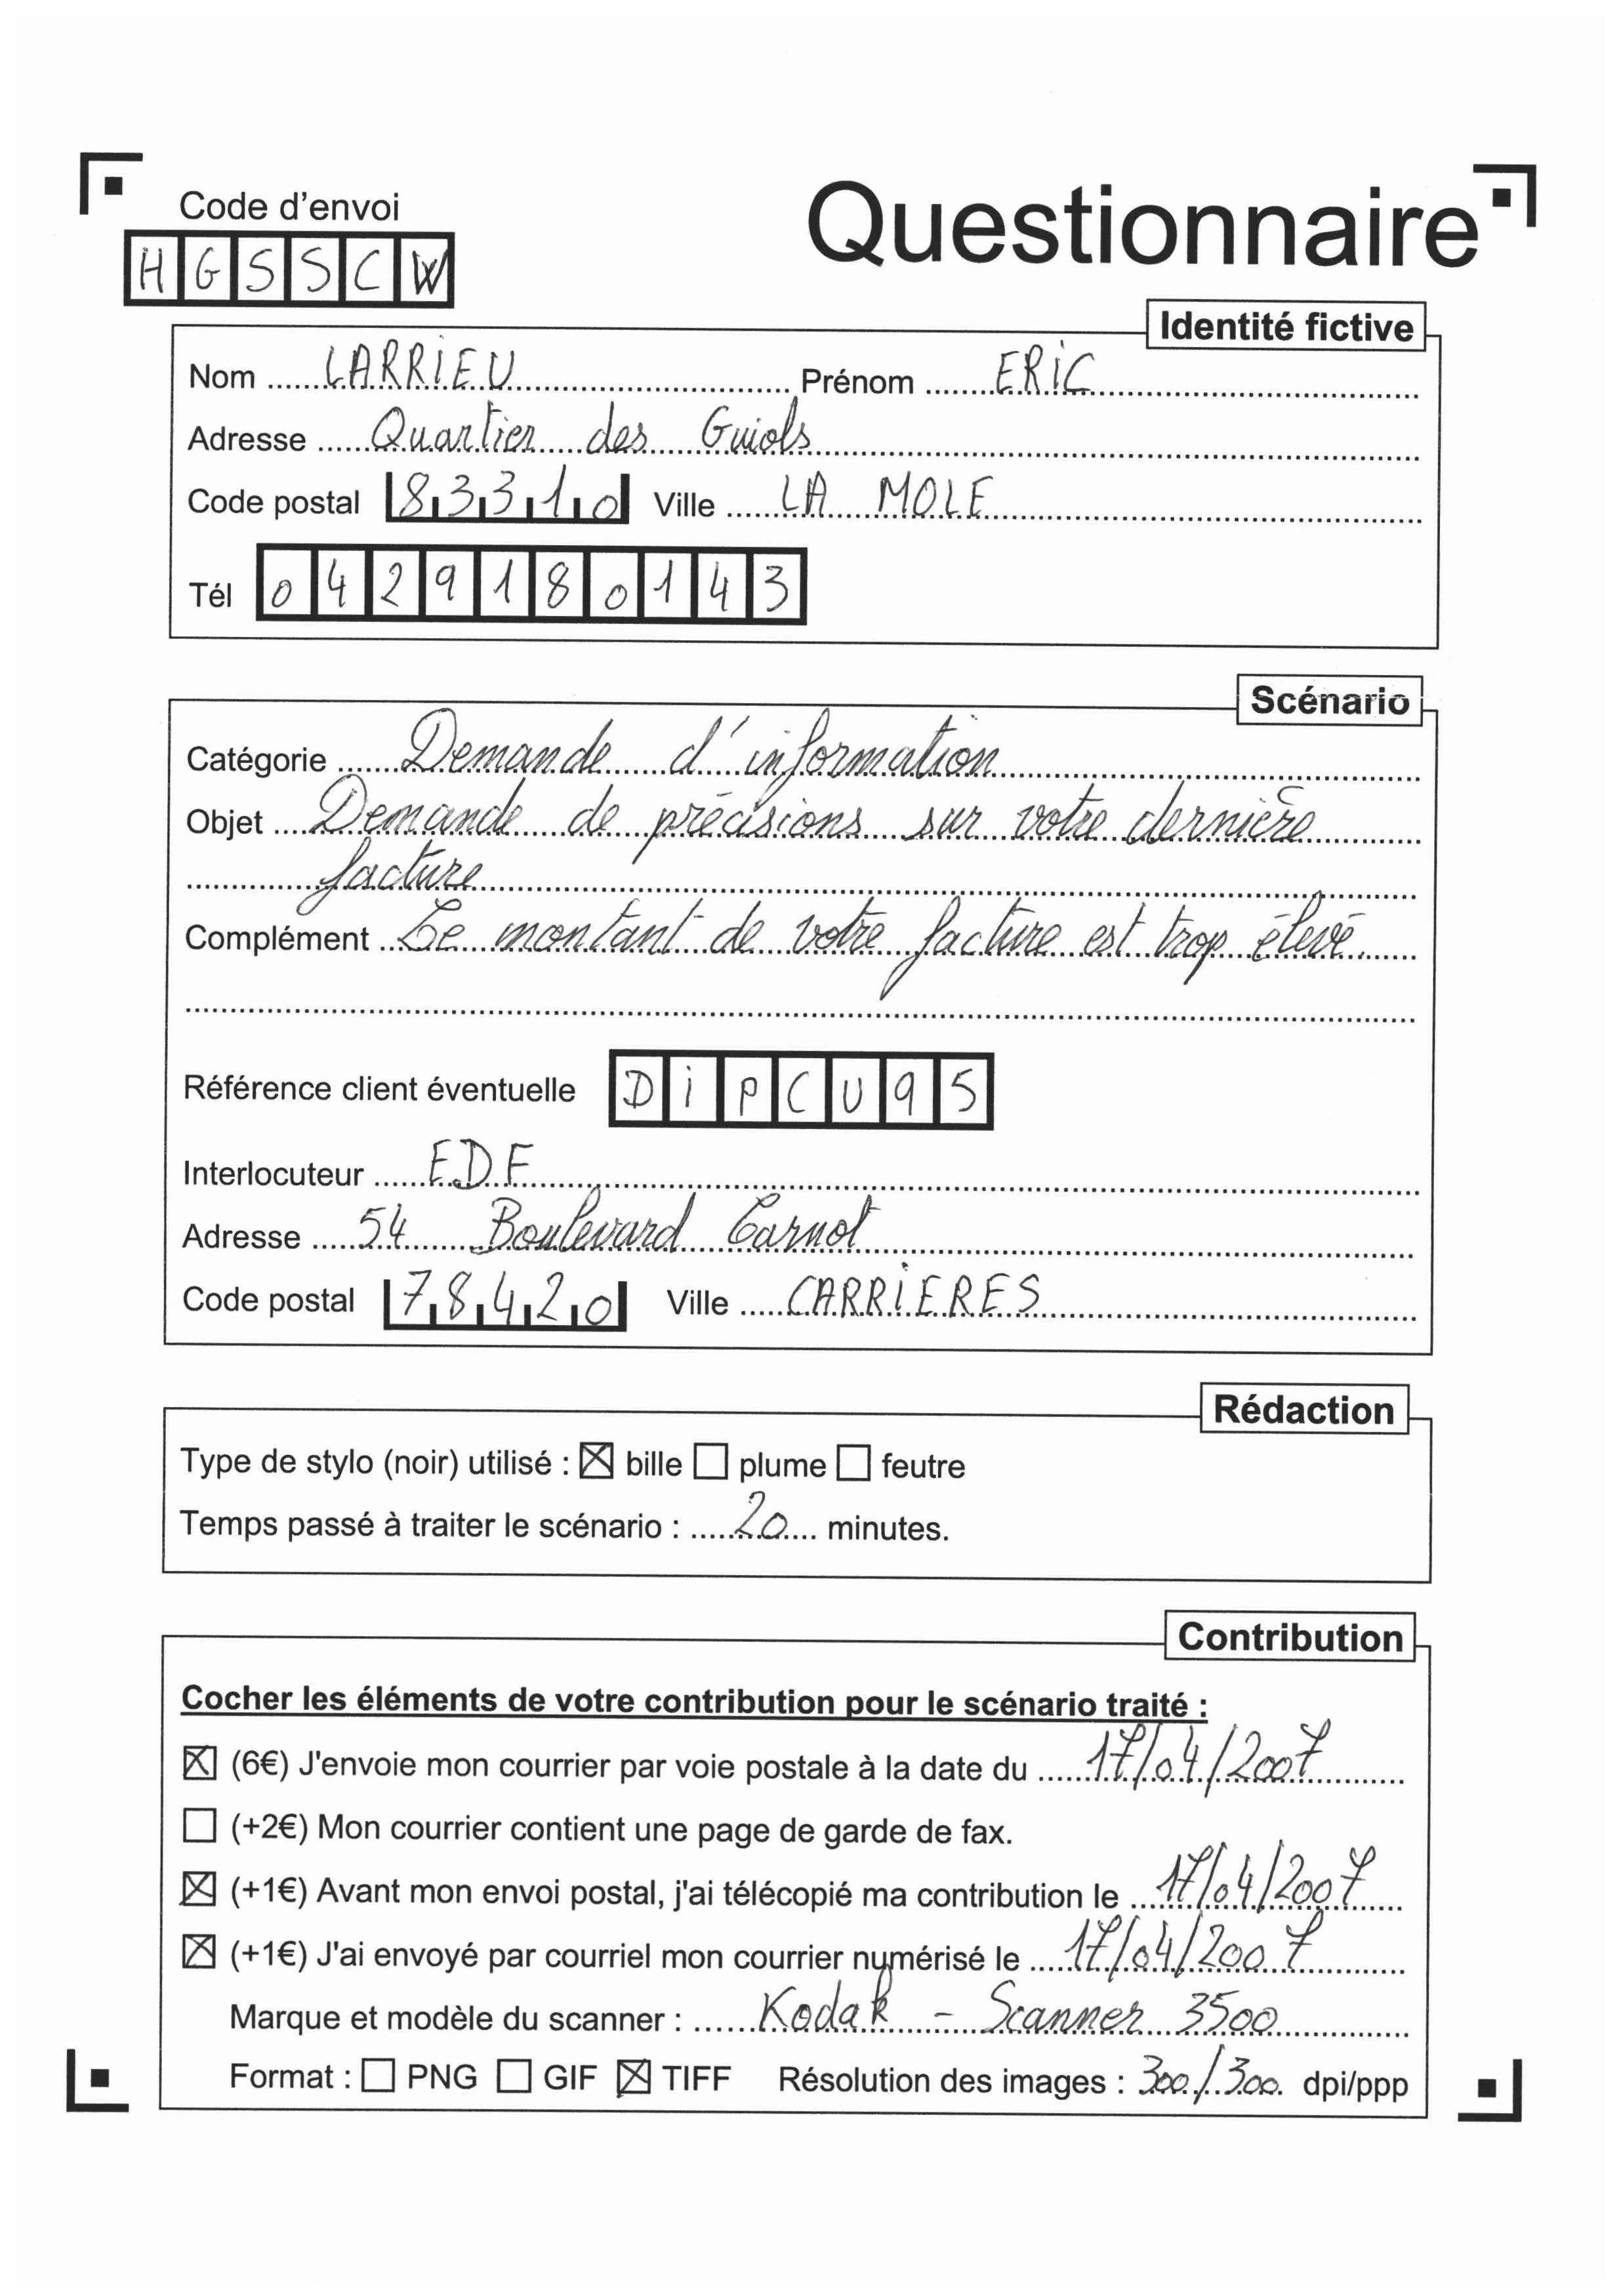 Code d'envoi
Questionnaire
HGSSCW
Identité fictive
Nom LARRIEU Prénom ERIC
Adresse Quartier des Guiols
Code postal 83310 Ville LA MOLE
Tél 0429180143
Scénario
Catégorie Demande d'information
Objet Demande de précisions sur votre dernière
facture
Complément Le montant de votre facture est trop élevé.
Référence client éventuelle DiPCU95
Interlocuteur EDF
Adresse 54 Boulevard Carnot
Code postal 78420 Ville CARRIERES
Rédaction
Type de stylo (noir) utilisé : ☒ bille ☐ plume ☐ feutre
Temps passé à traiter le scénario : 20 minutes.
Contribution
Cocher les éléments de votre contribution pour le scénario traité :
☒ (6€) J'envoie mon courrier par voie postale à la date du 17/04/2007
☐ (+2€) Mon courrier contient une page de garde de fax.
☒ (+1€) Avant mon envoi postal, j'ai télécopié ma contribution le 17/04/2007
☒ (+1€) J'ai envoyé par courriel mon courrier numérisé le 17/04/2007
Marque et modèle du scanner : Kodak - Scanner 3500
Format : ☐ PNG ☐ GIF ☒ TIFF Résolution des images : 300/300 dpi/ppp